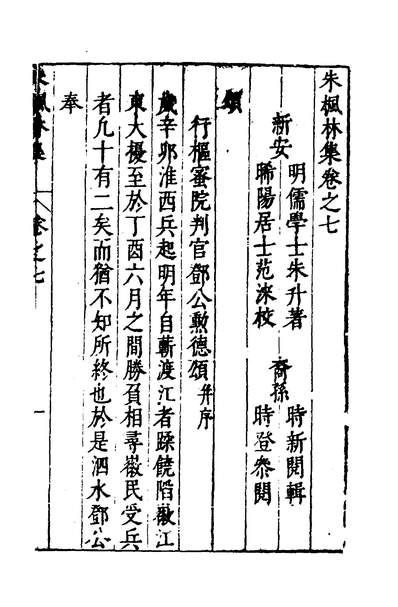 朱楓林集卷之七
新安
明儒學士朱升著
晞陽居士范淶校
裔孫
時新閱輯
時登叅閱
頌
行樞密院判官鄧公勲德頌并序
歲辛卯淮西兵起明年自蘄渡江者蹂饒陷徽江
東大擾至於丁酉六月之間勝負相尋徽民受兵
者凡十有二矣而猶不知所終也於是泗水鄧公
奉
朱楓林集
卷之七
一